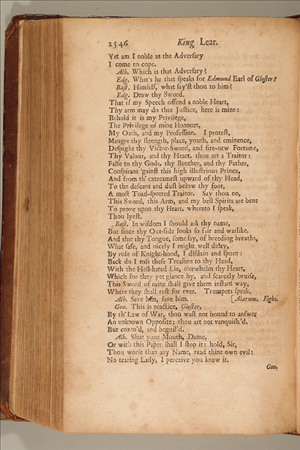 2546 King Lear.
Yet am I noble as the Adversary
I come to cope.
Alb. Which is that Adversary?
Edg. What's he that speaks for Edmund Earl of Gloster?
Bast. Himself, what say'st thou to him?
Edg. Draw thy Sword.
That if my Speech offend a noble Heart,
Thy arm may do thee Justice, here is mine:
Behold it is my Privilege,
The Privilege of mine Honours,
My Oath, and my Profession. I protest,
Maugre thy strength, place, youth, and eminence,
Despight thy Victor-Sword, and fire-new Fortune,
Thy Valour, and thy Heart, thou art a Traitor:
False to thy Gods, thy Brother, and thy Father,
Conspirant 'gainst this high illustrious Prince,
And from th' extreamest upward of thy Head,
To the descent and dust below thy foot,
A most Toad-spotted Traitor. Say thou no,
This Sword, this Arm, and my best Spirits are bent
To prove upon thy Heart, whereto I speak,
Thou lyest.
Bast. In wisdom I should ask thy name,
But since thy Out-side looks so fair and warlike,
And that thy Tongue, some say, of breeding breaths,
What safe, and nicely I might well delay,
By rule of Knight-hood, I disdain and spurn:
Back do I toss these Treasons to thy Head,
With the Hell-hated Lie, o'erwhelm thy Heart,
Which for they yet glance by, and scarcely bruise,
This Sword of mine shall give them instant way,
Where they shall rest for ever. Trumpets speak.
Alb. Save him, save him. [Alarum. Fight.
Gon. This is practice, Gloster,
By th' Law of War, thou wast not bound to answer
An unknown Opposite; thou art not vanquish'd,
But cozen'd, and beguil'd.
Alb. Shut your Mouth, Dame,
Or with this Paper shall I stop it: hold, Sir,
Thou worse than any Name, read thine own evil:
No tearing Lady, I perceive you know it.
Gon.